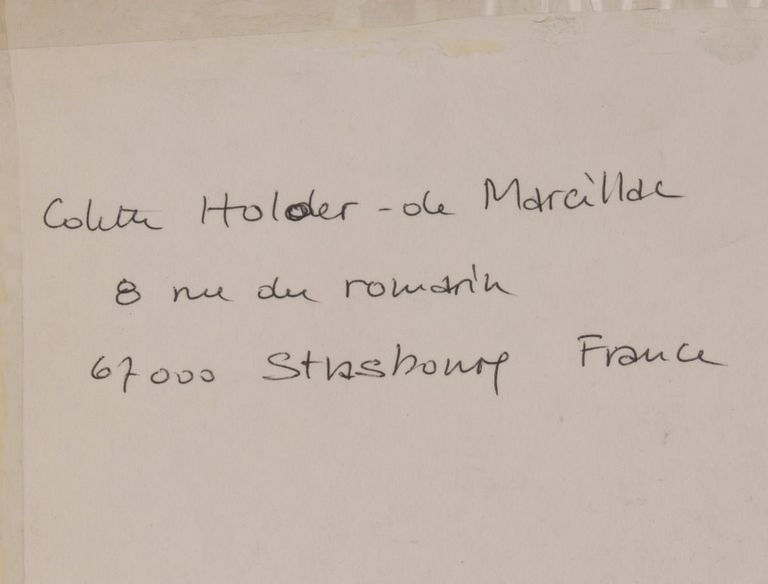 Colette Holder-de Marcillac
8 rue du romarin
67000 Strasbourg France